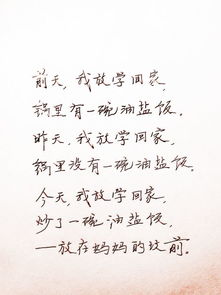 前天，我放学回家，
锅里有一碗油盐饭。
昨天，我放学回家，
锅里没有一碗油盐饭。
今天，我放学回家，
炒了一碗油盐饭，
——放在妈妈的坟前。